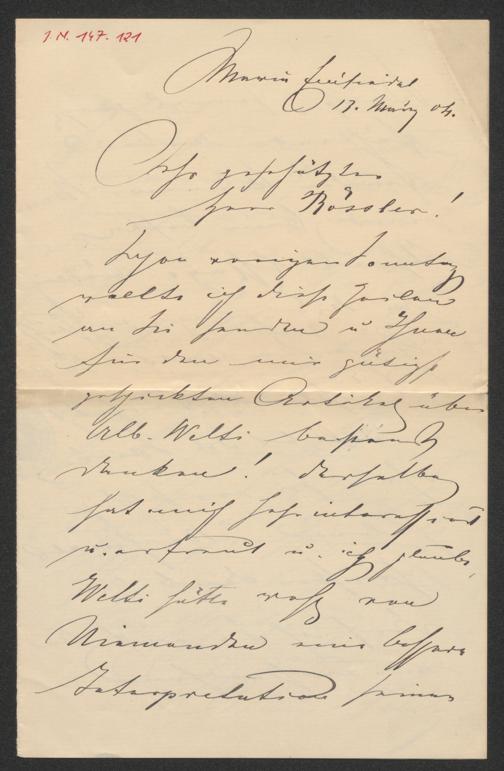 I.N. 147.121
Maria Einsiedel
17. März 04.
Sehr geschätzter
Herr Rössler!
Schon vorigen Sonntag
wollte ich diese Zeilen
an Sie senden u Ihnen
für den mir gütigst
geschickten Artikel über
Alb. Welti bestens
danken! Derselbe
hat mich sehr interessiert
u. erfreut u. ich glaube,
Welti hätte wohl von
Niemanden eine bessere
Interpretation seiner